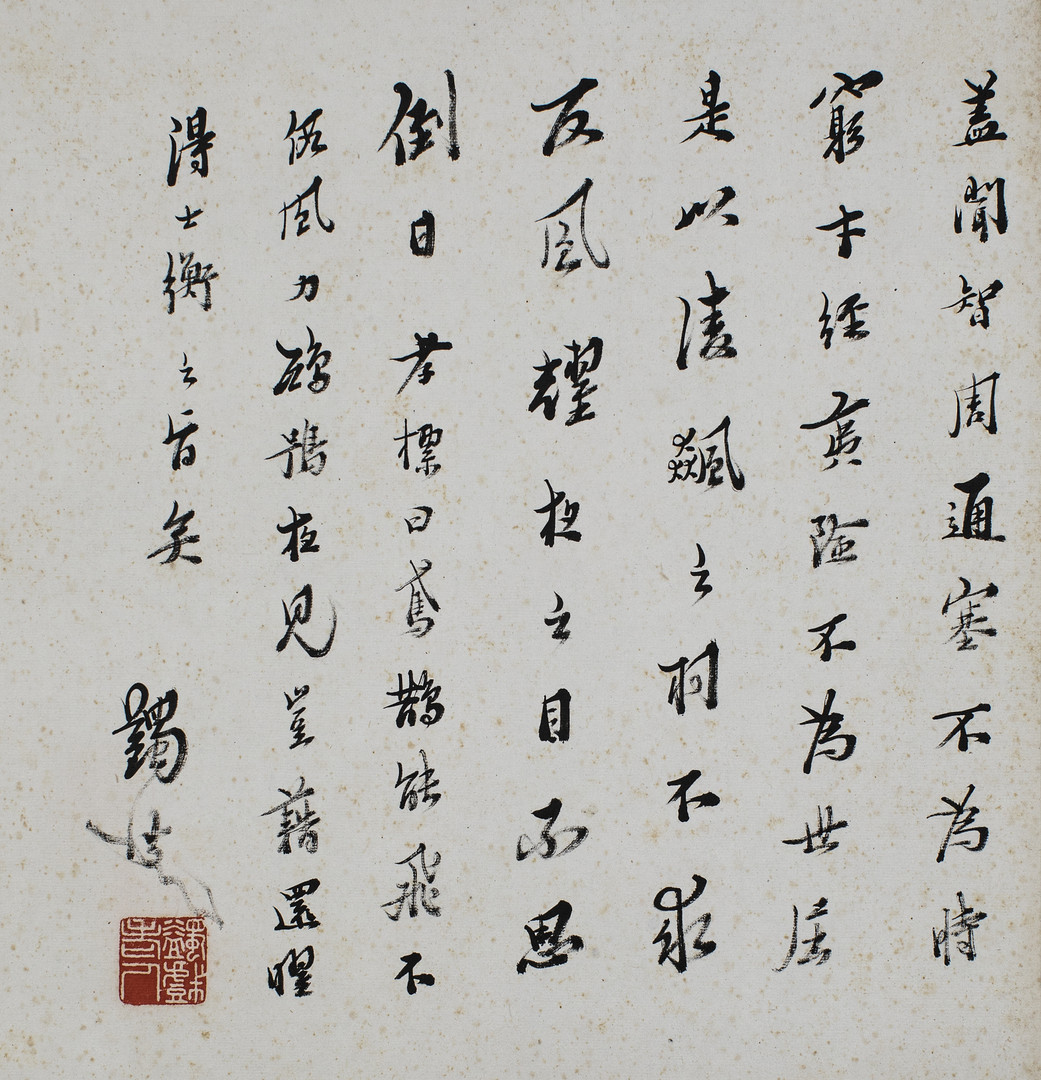 蓋聞智周通塞不為時
窮才經夷險不為世屈
是以凌飆之羽不求
反風耀夜之目不思
倒日孝標曰鳶鵲能飛不
假風力鴟鴞夜見豈藉還曜
得士衡之旨矣
蠲叟